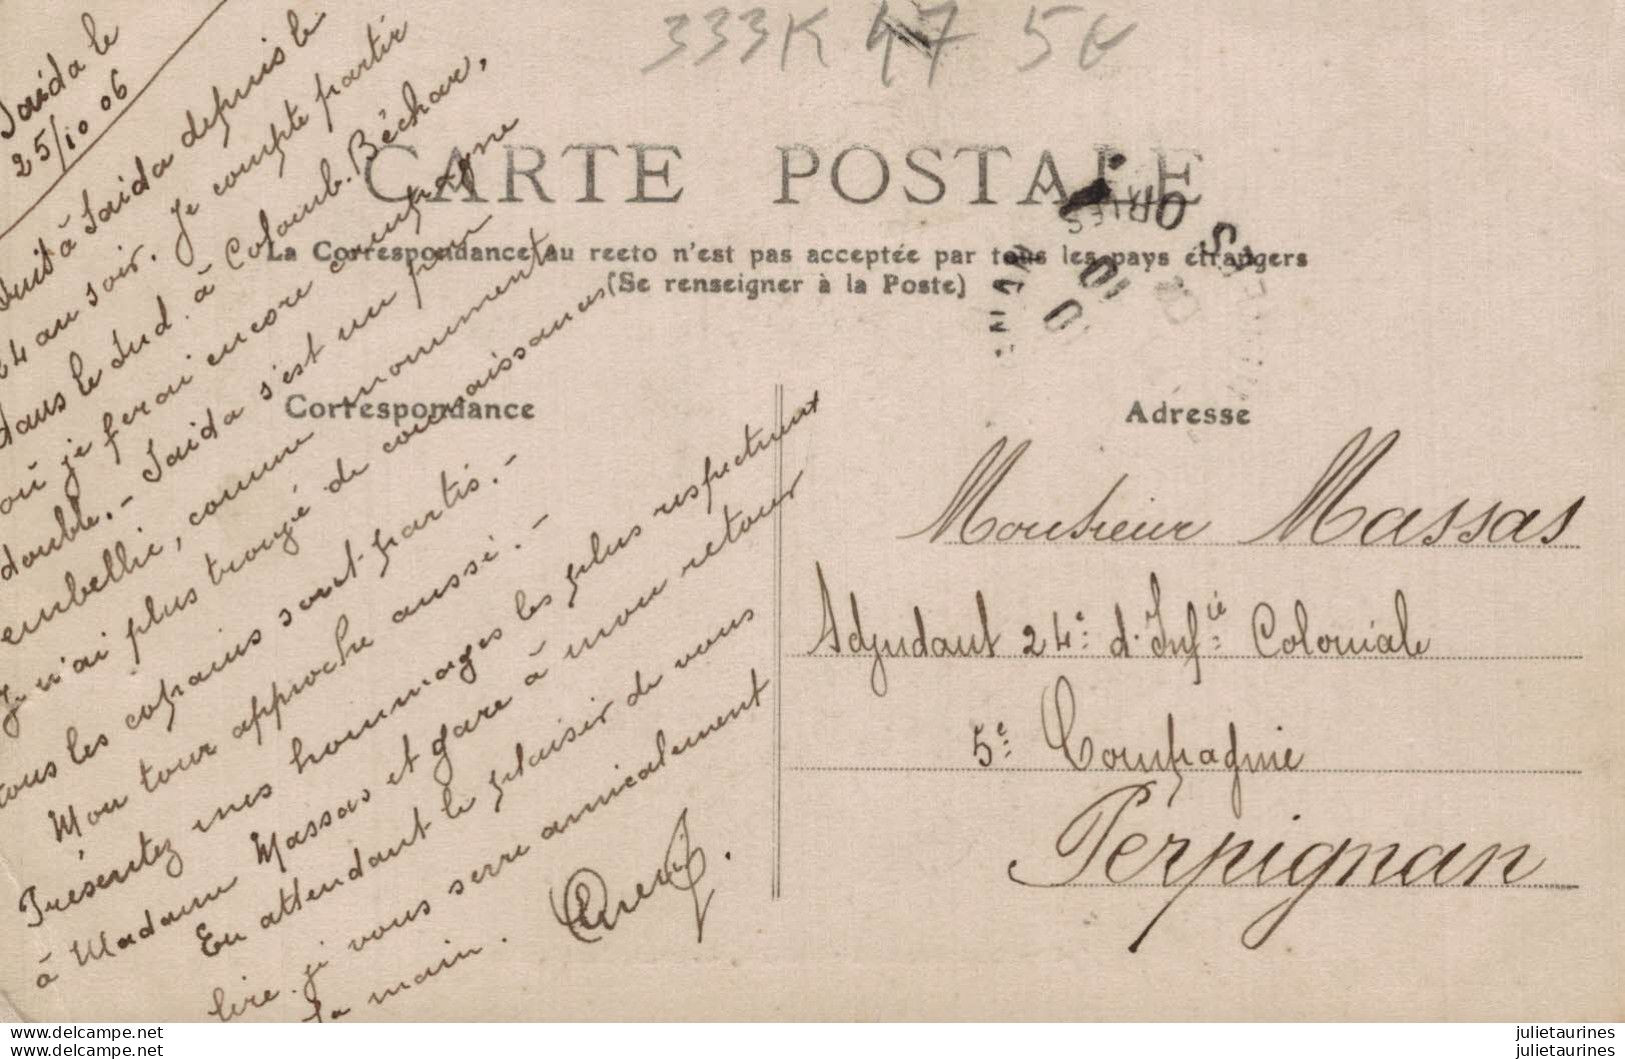 333K 47 5E
CARTE POSTALE
La Correspondance au recto n'est pas acceptée par tous les pays étrangers
(Se renseigner à la Poste)
Correspondance
Adresse
Saida le
25/10 06
Suis à Saida depuis le
24 au soir. Je compte partir
dans le Sud. à Colomb. Béchar,
où je ferai encore campagne
double. - Saida s'est un peu
embellie, comme monuments
Je n'ai plus trouvé de connaissances
tous les copains sont partis. -
Mon tour approche aussi. -
Présentez mes hommages les plus respectueux
à Madame Massas et gare à mon retour
En attendant le plaisir de vous
lire. je vous serre amicalement
la main.
Monsieur Massas
Adjudant 24e d'Infie Coloniale
5e Compagnie
Perpignan
www.delcampe.net
www.delcampe.net
julietaurines
julietaurines